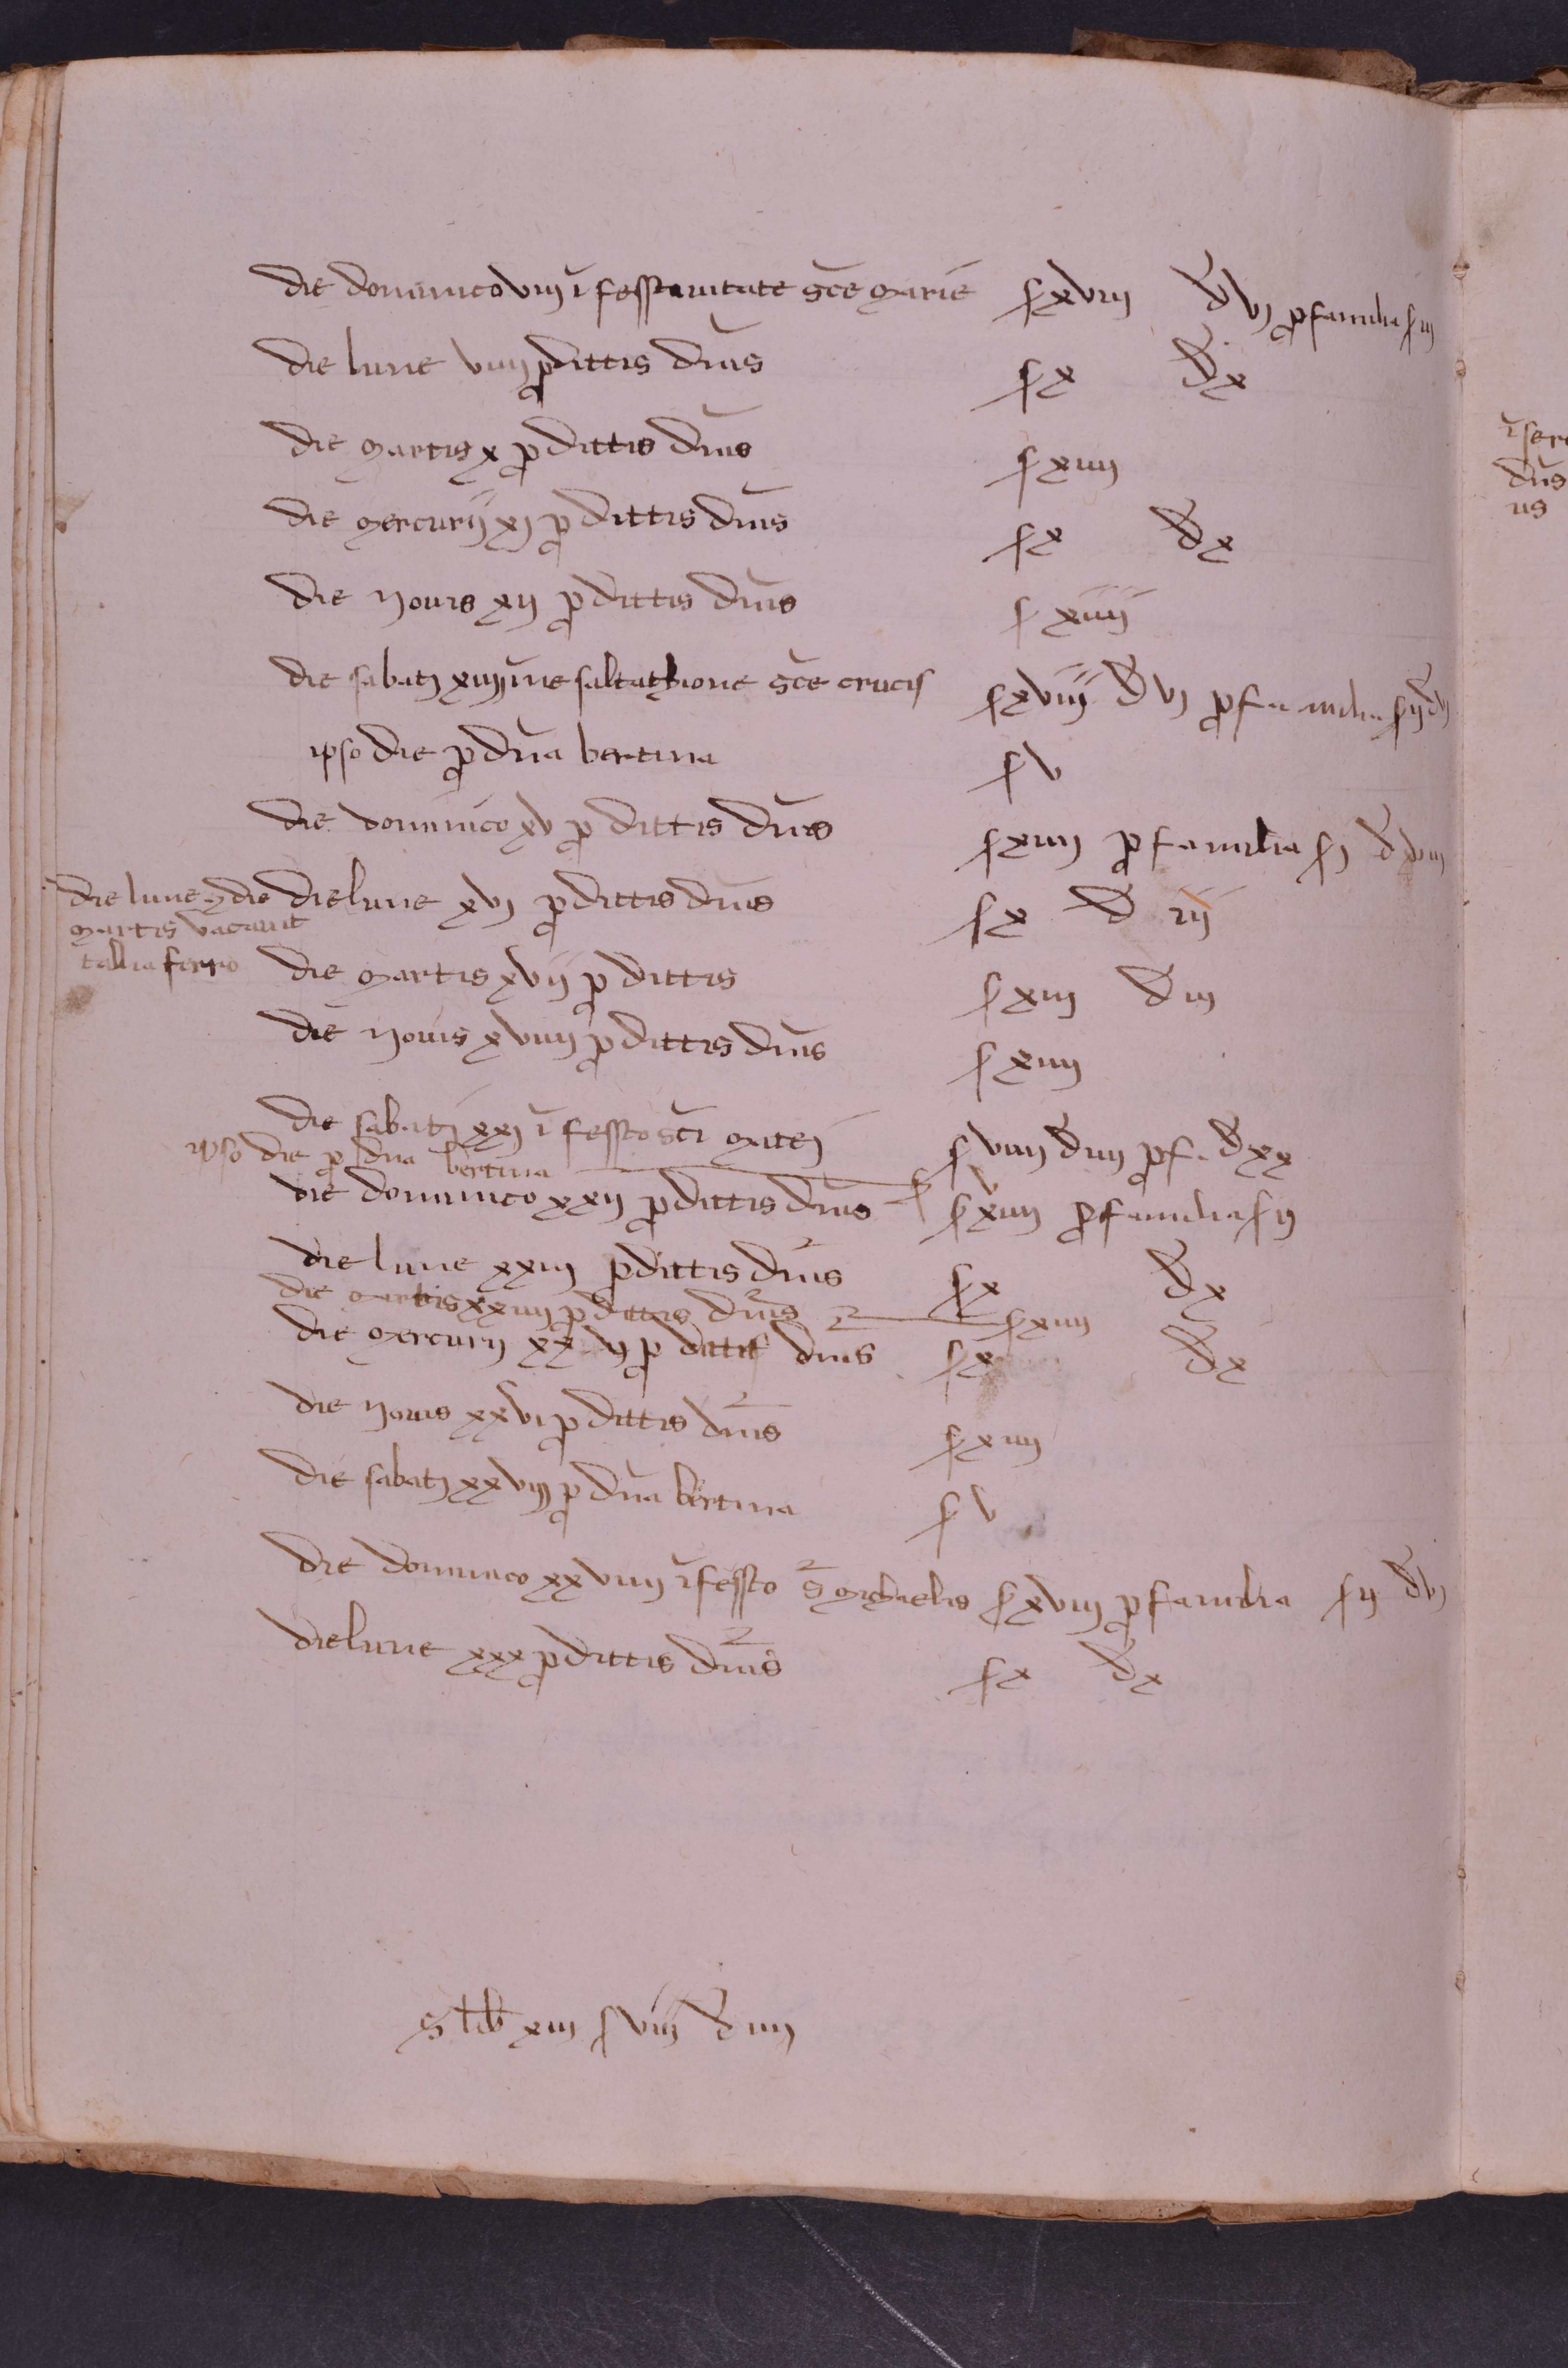 die dominico viij ī festtauitate sc̄e marie s xviij d̄ vj ꝓ familia s iij
die lune viiij ꝓ dittis dn̄is s x d̄ x
die martis x ꝓ dittis dn̄is s xiiij
die mercurij xj ꝓ dittis dn̄is s x d̄ x
die Jouis xij ꝓ dittis dn̄is s xiiij
die sabatj xiiij īne saltatzione sc̄e crucis s xviij d̄ vj ꝓ familia s ij d̄ vj
ipso die ꝓ dn̄a bertina s v
die dominico xv ꝓ dittis dn̄is s xiiij ꝓ familia s j d̄ viij
die lune ⁊ die
martis vacauit
tallia ferro
die lune xvj ꝓ dittis dn̄is s x d̄ iij
die martis xvij ꝓ dittis s xiij d̄ iij
die Jouis xviiij ꝓ dittis dn̄is s xiiij
die sabatj xxj ī festto sc̄i matej s viiij d̄ iiij ꝓ f. d̄ xx
ipso die ꝓ dn̄a bertina s v
die dominico xxij ꝓ dittis dn̄is s xiiij ꝓ familia s ij
die lune xxiij ꝓ dittis dn̄is s x d̄ x
die martis xxiiij ꝓ dittis dn̄is s xiiij
die mercurij xxv ꝓ dittis dn̄is s x d̄ x
die Jouis xxvi ꝓ dittis dn̄is s xiiij
die sabatj xxviij ꝓ dn̄a bertina s v
die dominico xxviiij ī festto s̄ michaelis s xviij ꝓ familia s ij d̄ vj
die lune xxx ꝓ dittis dn̄is s x d̄ x
S lib̄ xiij s viij d̄ iiij
dn̄s
us